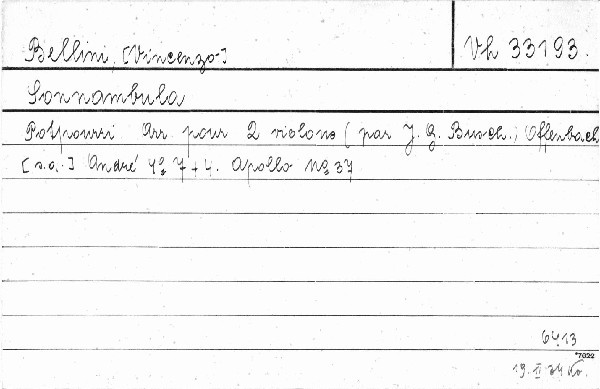 Bellini, [Vincenzo-]
Vh 33193.
Sonnambula
Potpourri. Arr. pour 2 violons (par J. G. Busch.) Offenbach
[s.a.] André 4º 7+4. Apollo Nº 37
6413
*7022
19. II